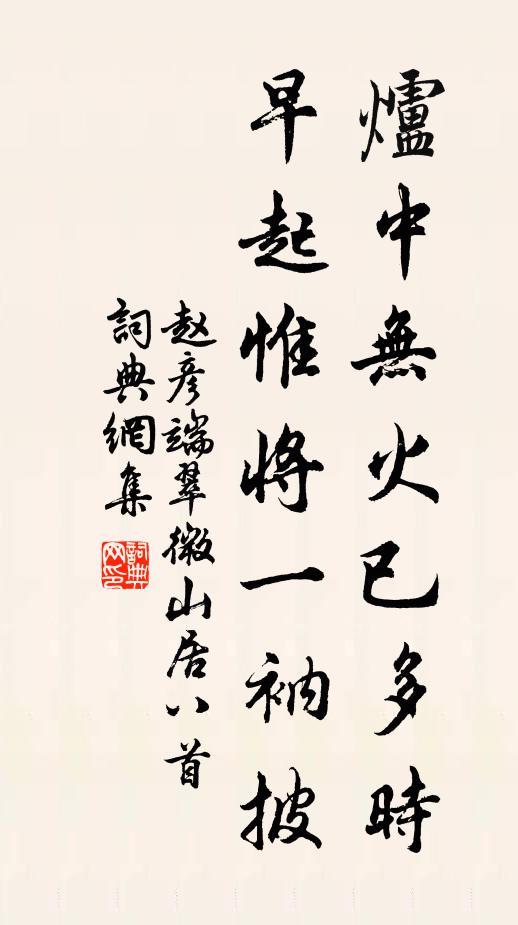 爐中無火已多時
早起惟將一衲披
赵彦端翠微山居八首
詞典網集
詞典网印